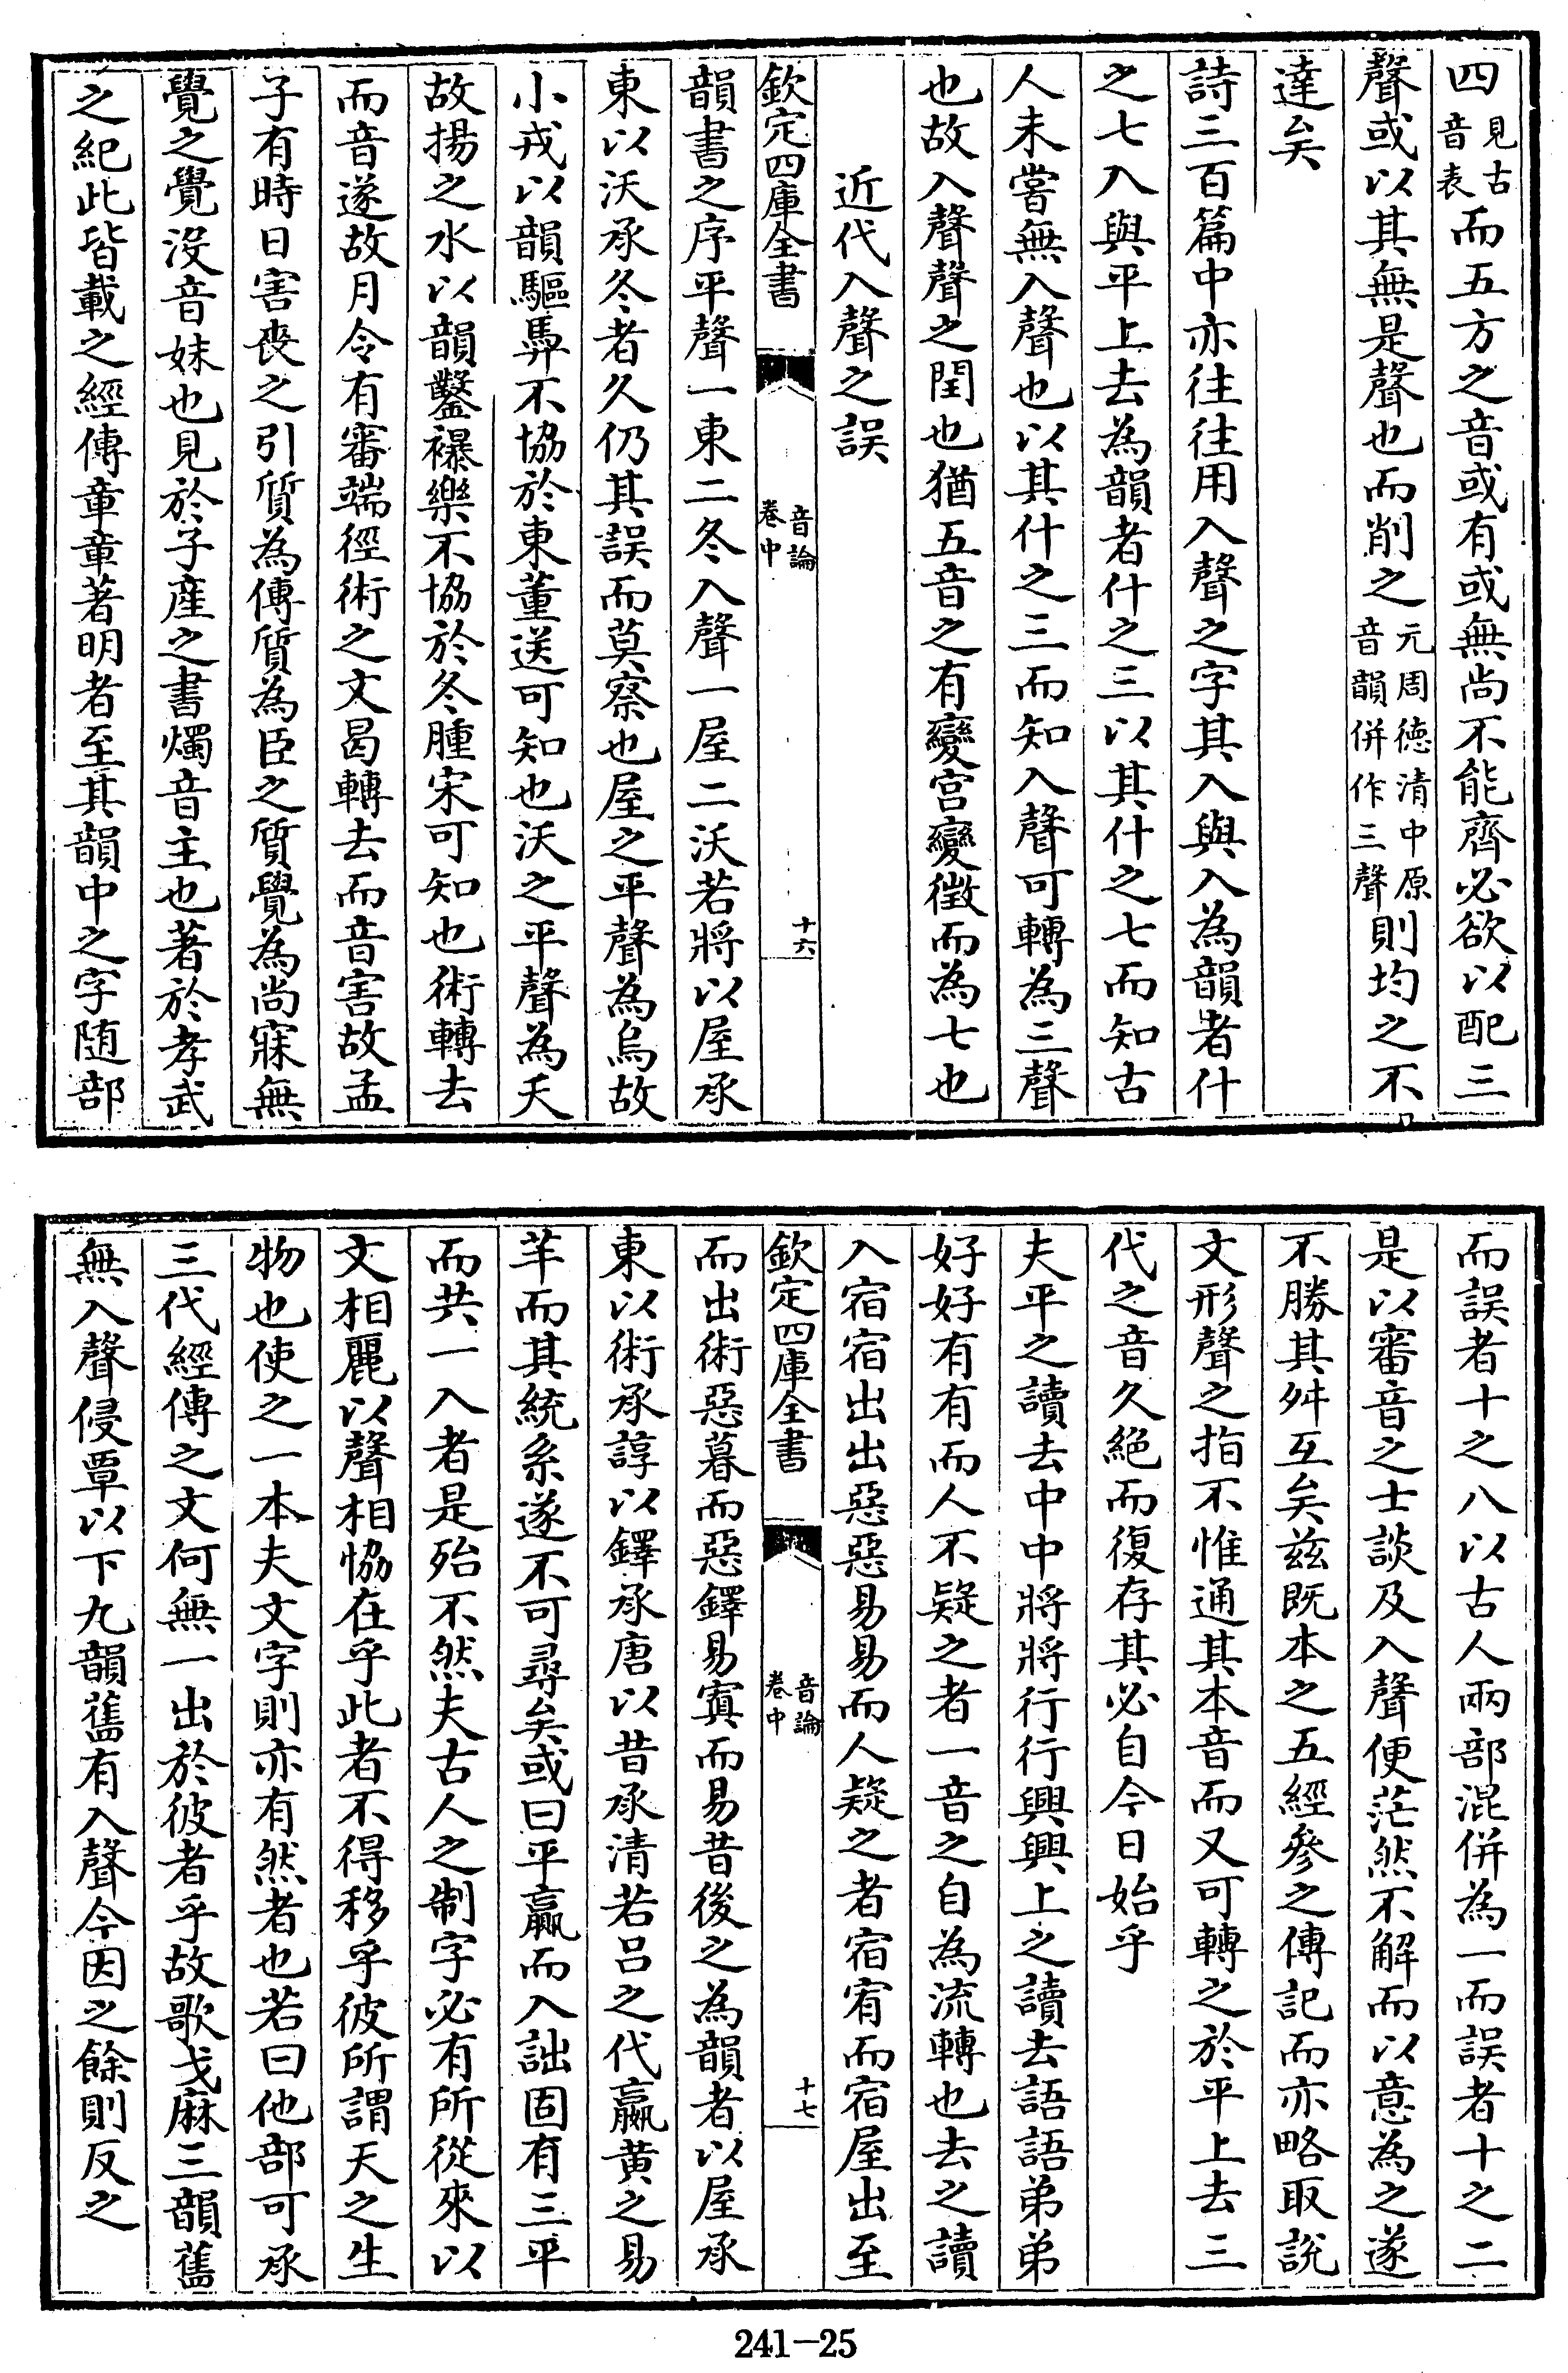 四見古音表而五方之音或有或無尚不能齊必欲以配三
聲或以其無是聲也而削之元周德清中原音韻併作三聲則均之不
達矣
詩三百篇中亦往往用入聲之字其入與入為韻者什
之七入與平上去為韻者什之三以其什之七而知古
人未嘗無入聲也以其什之三而知入聲可轉為三聲
也故入聲聲之閏也猶五音之有變宮變徵而為七也
近代入聲之誤
欽定四庫全書
音論
卷中
十六
韻書之序平聲一東二冬入聲一屋二沃若將以屋承
東以沃承冬者久仍其誤而莫察也屋之平聲為烏故
小戎以韻驅馵不協於東董送可知也沃之平聲為夭
故揚之水以韻鑿襮樂不協於冬腫宋可知也術轉去
而音遂故月令有審端徑術之文曷轉去而音害故孟
子有時日害喪之引質為傳質為臣之質覺為尚寐無
覺之覺沒音妹也見於子產之書燭音主也著於孝武
之紀此皆載之經傳章章著明者至其韻中之字随部
而誤者十之八以古人兩部混併為一而誤者十之二
是以審音之士談及入聲便茫然不解而以意為之遂
不勝其舛互矣兹既本之五經參之傳記而亦略取說
文形聲之指不惟通其本音而又可轉之於平上去三
代之音久絕而復存其必自今日始乎
夫平之讀去中中將將行行興興上之讀去語語弟弟
好好有有而人不疑之者一音之自為流轉也去之讀
入宿宿出出惡惡易易而人疑之者宿宥而宿屋出至
欽定四庫全書
音論
卷中
十七
而出術惡暮而惡鐸易寘而易昔後之為韻者以屋承
東以術承諄以鐸承唐以昔承清若呂之代嬴黄之易
芊而其統系遂不可尋矣或曰平贏而入詘固有三平
而共一入者是殆不然夫古人之制字必有所從來以
文相麗以聲相恊在乎此者不得移乎彼所謂天之生
物也使之一本夫文字則亦有然者也若曰他部可承
三代經傳之文何無一出於彼者乎故歌戈麻三韻舊
無入聲侵覃以下九韻舊有入聲今因之餘則反之
241-25